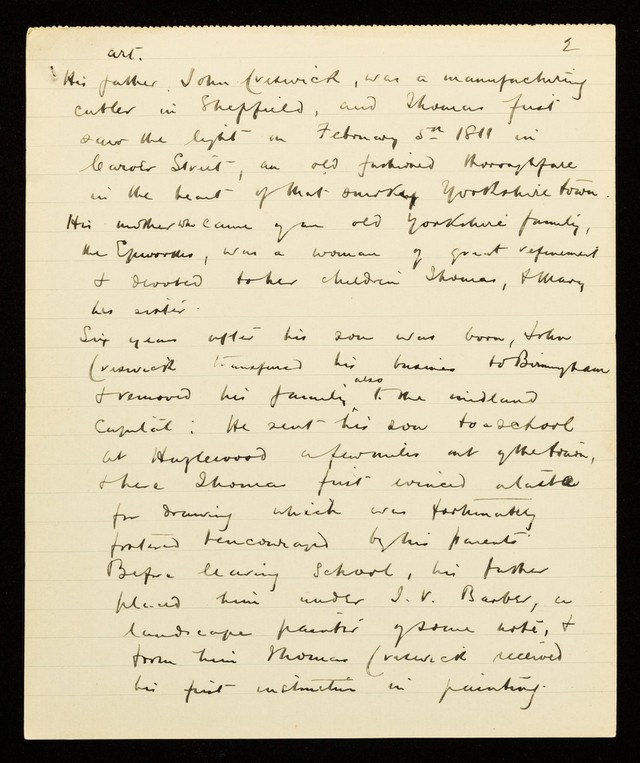 2
art.
His father, John Creswick, was a manufacturing
cutler in Sheffield, and Thomas first
saw the light on February 5th 1811 in
Carver Street, an old fashioned thoroughfare
in the heart of that smoky Yorkshire town.
His mother who came of an old Yorkshire family,
the Epworths, was a woman of great refinement
& devoted to her children Thomas, & Mary
his sister.
Six years after his son was born, John
Creswick transferred his business to Birmingham
& removed his family also to the midland
Capital: He sent his son to a school
at Hazlewood a few miles out of the town,
& here Thomas first evinced a taste
for drawing which was fortunately
fostered & encouraged by his parents.
Before leaving School, his father
placed him under J. V. Barber, a
landscape painter of some note, &
from him Thomas Creswick received
his first instruction in painting.